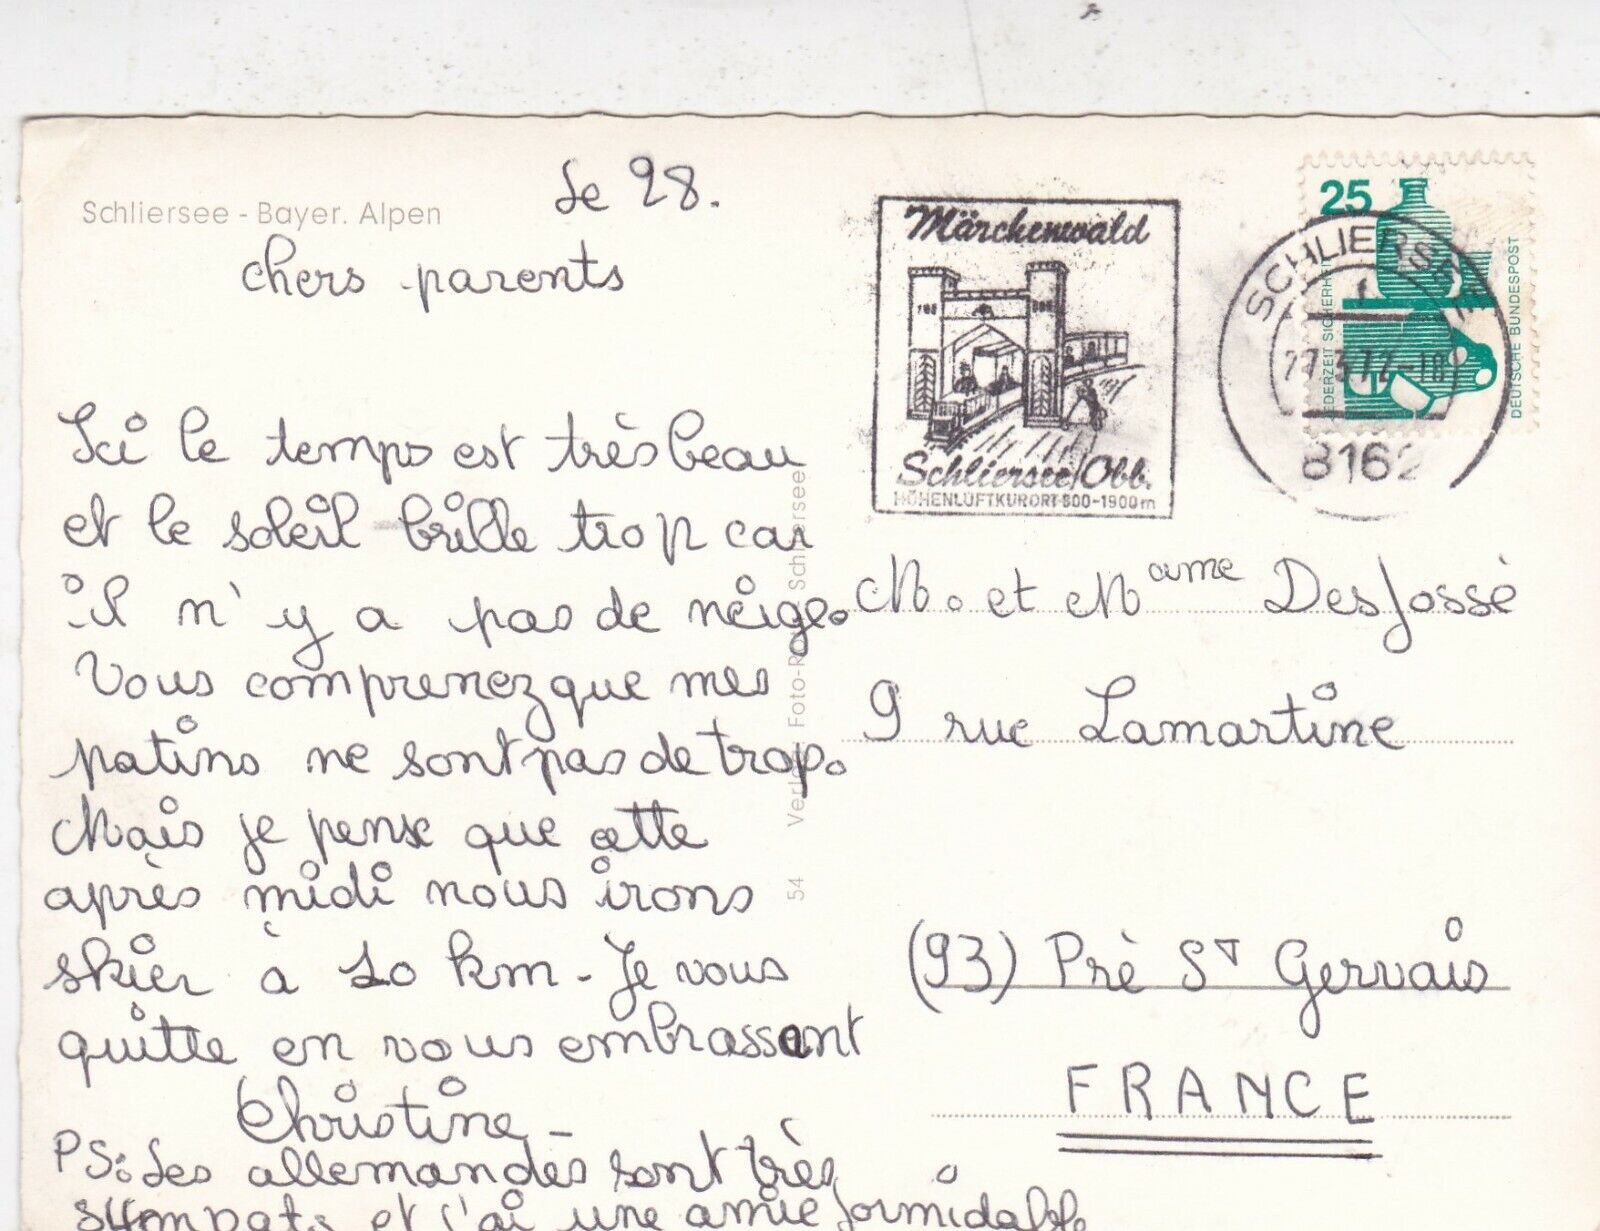 Schliersee - Bayer. Alpen
Le 28.
chers parents
Ici le temps est très beau
et le soleil brille trop car
il n'y a pas de neige.
Vous comprenez que mes
patins ne sont pas de trop.
Mais je pense que cette
après midi nous irons
skier à 10 km - Je vous
quitte en vous embrassant
Christine -
PS: Les allemandes sont très
sympats et j'ai une amie formidable
54 Verlag Foto- Schliersee
Märchenwald
Schliersee/Obb.
HÖHENLUFTKURORT 800-1900m
SCHLIERSEE
8162
25
JEDERZEIT SICHERHEIT
DEUTSCHE BUNDESPOST
M. et Mame Desfossé
9 rue Lamartine
(93) Pré St Gervais
FRANCE